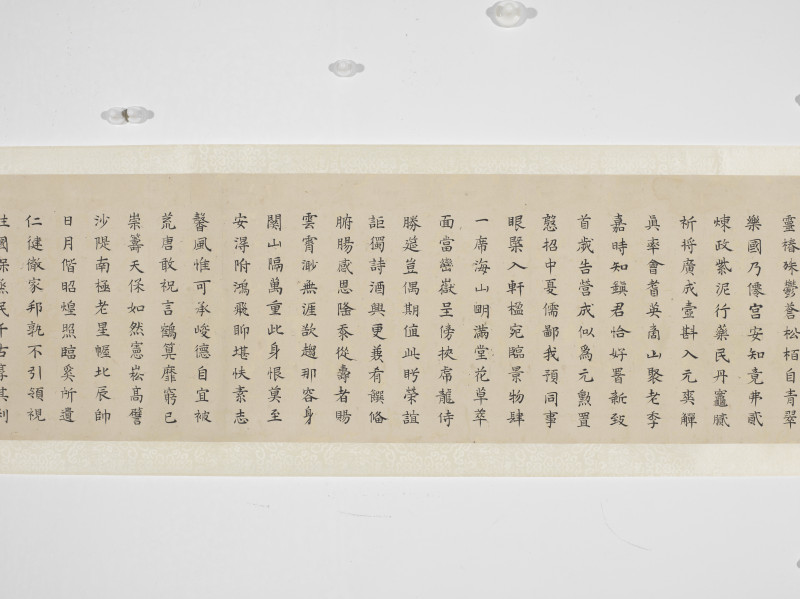 靈椿殊鬱蒼松栢自青翠
樂國乃僊宫安知竟弗貳
煉政紫泥行藥民丹竈
祈将廣成壺斟入元爽觶
眞率會耆英商山聚老李
嘉時知鎮君恰好署新致
首或告營成似爲元勲置
憗招中憂儒鄙我預同事
眼槩入軒楹宛臨景物肆
一席海山明滿堂花草萃
面當巒嶽呈傍挾席龍侍
勝筵豈偶期值此盻榮誼
詎獨詩酒興更羨有饌脩
腑腸感恩隆黍從壽者賜
雲霄渺無涯欲趨那容身
関山隔萬重此身恨莫至
安得附鴻飛聊堪快素志
馨風惟可承峻德自宜被
荒唐敢祝言鶴筭靡窮已
崇籌天保如然憲崧高譬
沙隄南極老星幄北辰帥
日月偕昭煌照臨奚所遺
仁徤儆家邦孰不引領視
性國保烝民千古享其利